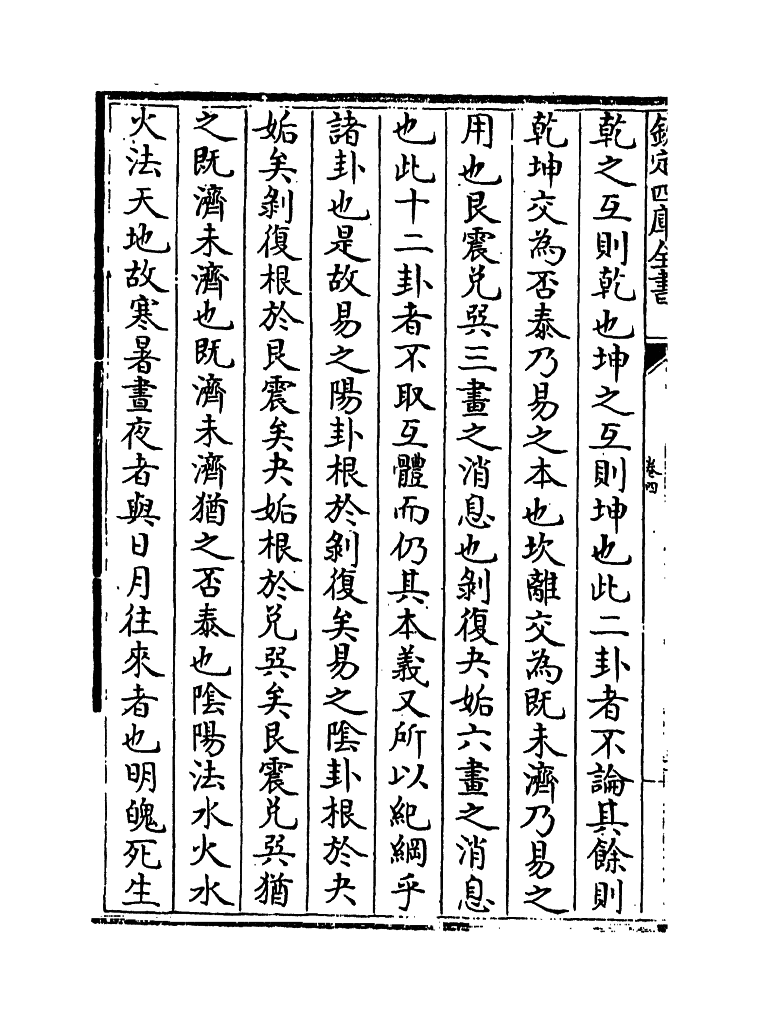 欽定四庫全書
卷四
乾之互則乾也坤之互則坤也此二卦者不論其餘則
乾坤交為否泰乃易之本也坎離交為既未濟乃易之
用也艮震兌巽三畫之消息也剝復夬姤六畫之消息
也此十二卦者不取互體而仍其本義又所以紀綱乎
諸卦也是故易之陽卦根於剝復矣易之陰卦根於夬
姤矣剝復根於艮震矣夬姤根於兌巽矣艮震兌巽猶
之既濟未濟也既濟未濟猶之否泰也陰陽法水火水
火法天地故寒暑晝夜者與日月往來者也明魄死生